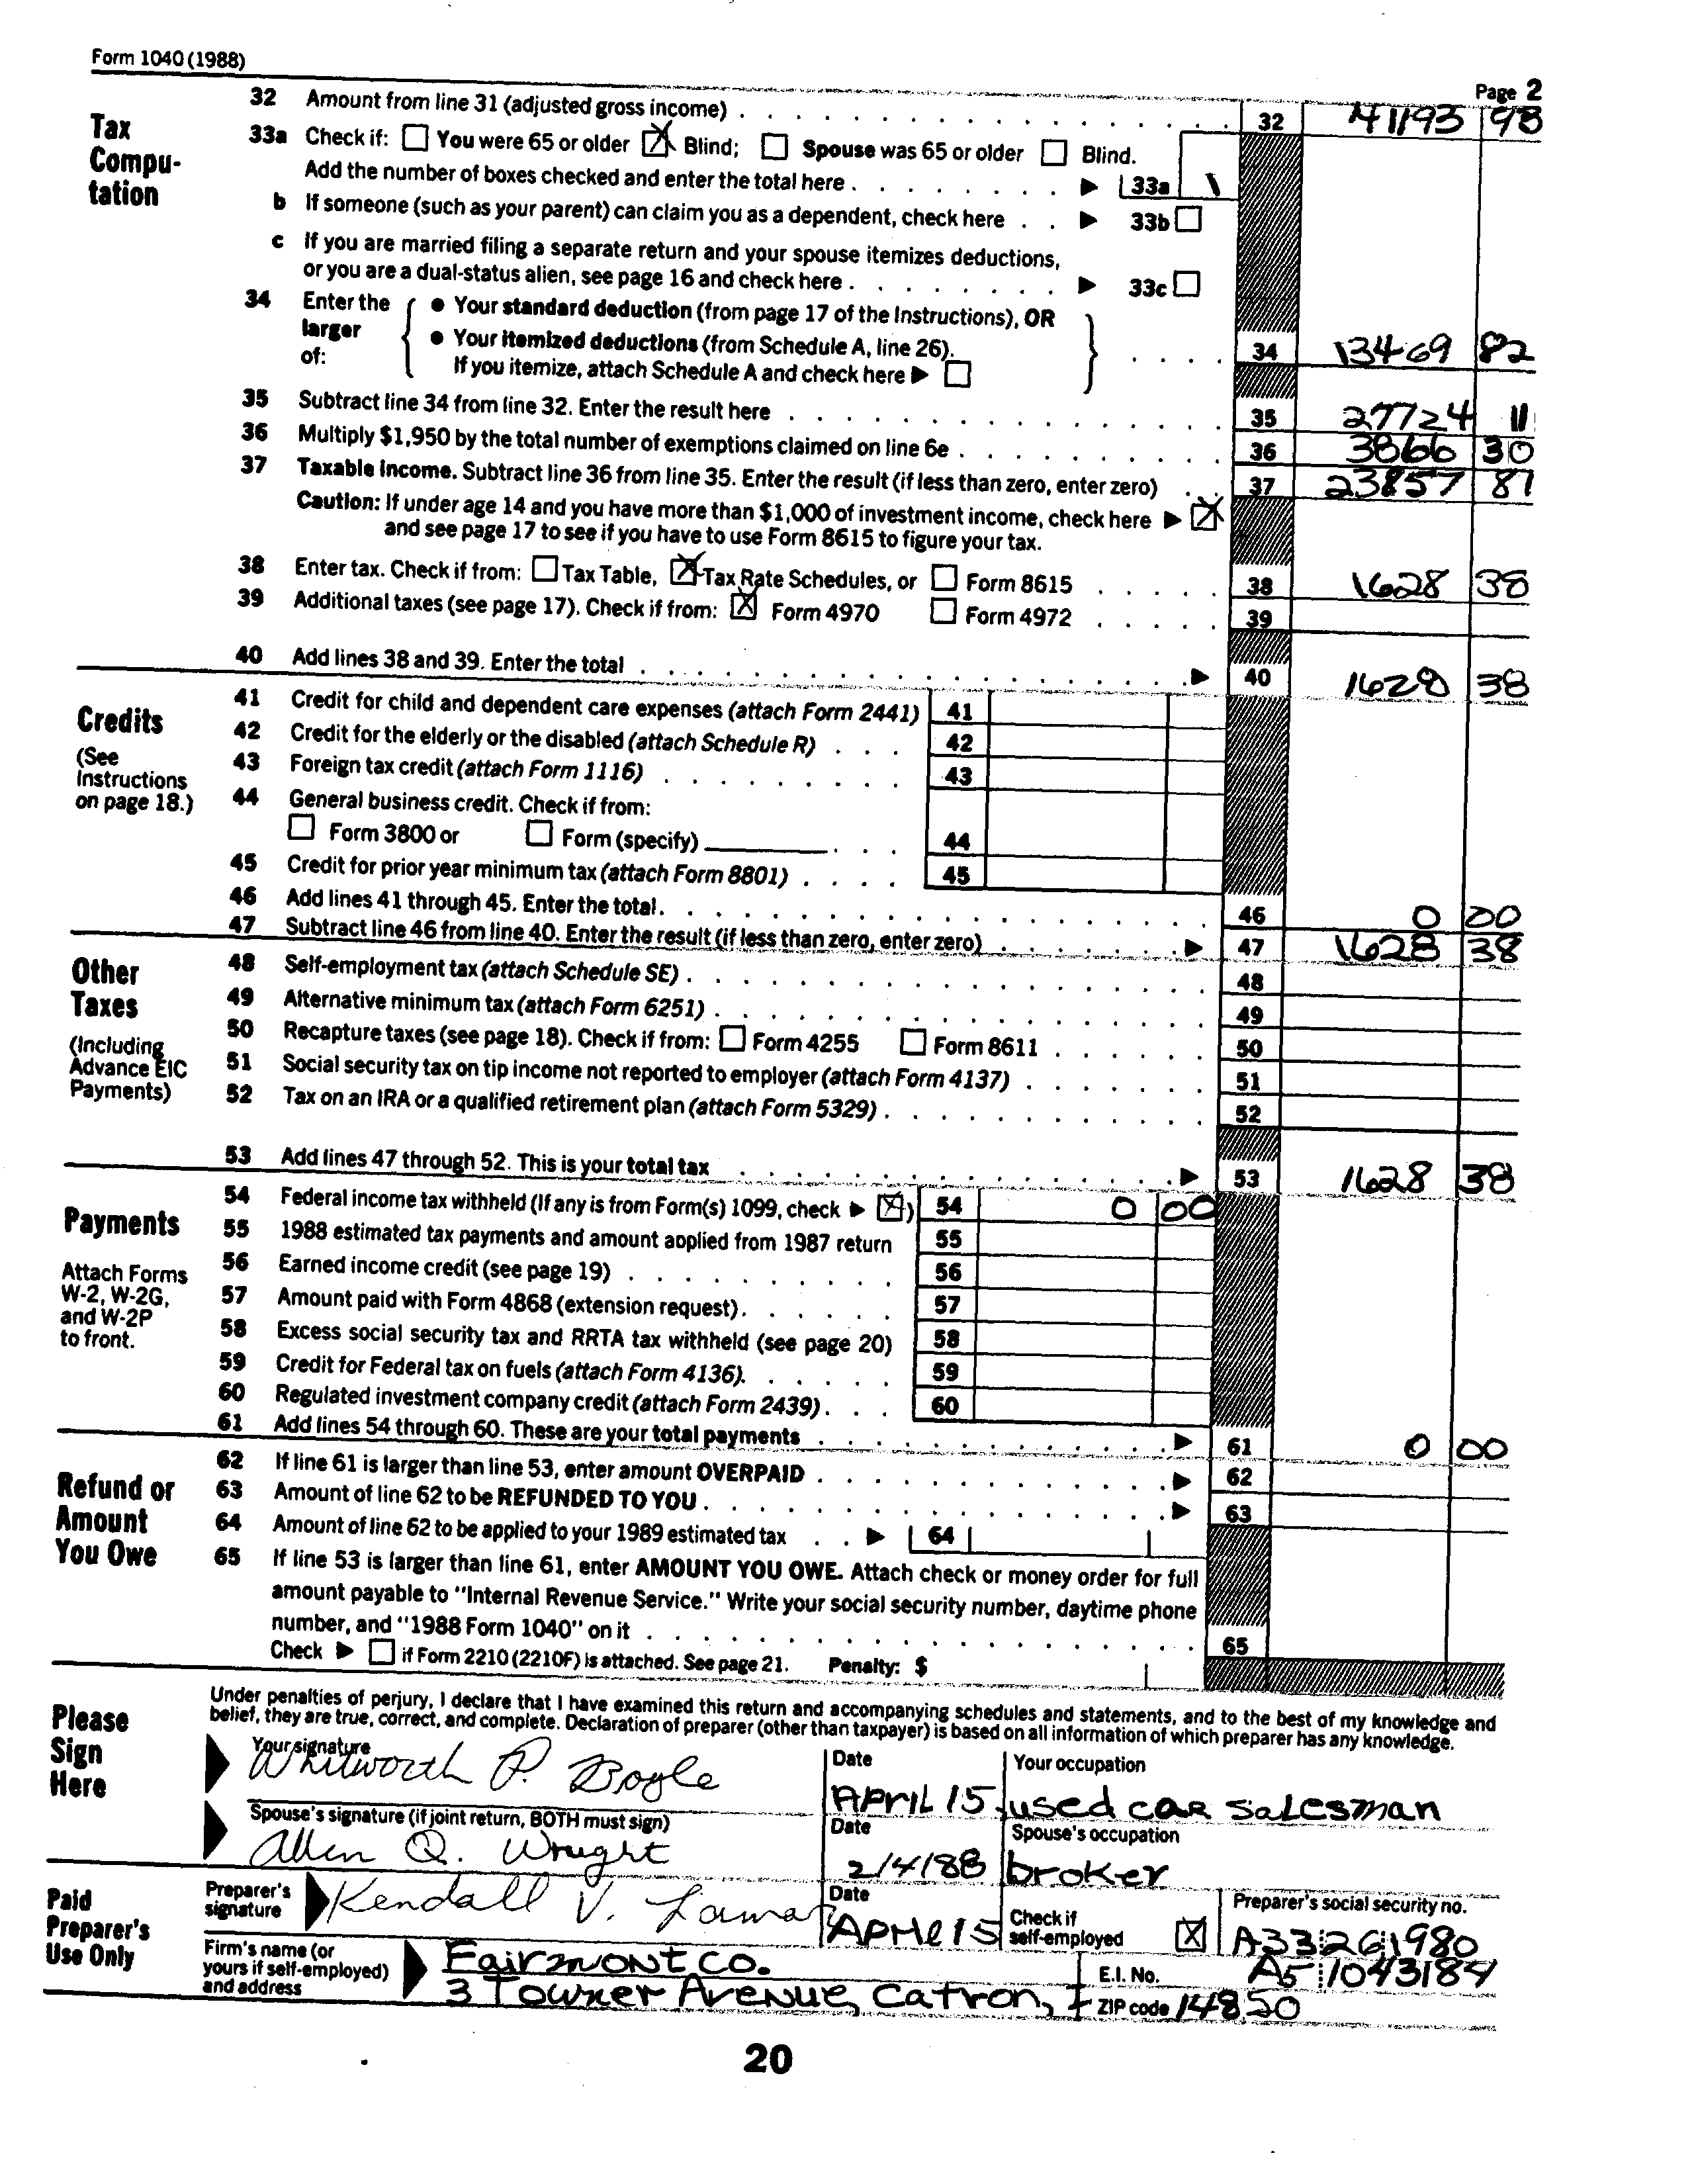 Form 1040 (1988)
Page 2
Tax Compu-tation
32 Amount from line 31 (adjusted gross income) 32 41193 93
33a Check if: You were 65 or older X Blind; Spouse was 65 or older Blind.
Add the number of boxes checked and enter the total here 33a 1
b If someone (such as your parent) can claim you as a dependent, check here 33b
c If you are married filing a separate return and your spouse itemizes deductions,
or you are a dual-status alien, see page 16 and check here 33c
34 Enter the larger of:
• Your standard deduction (from page 17 of the Instructions), OR
• Your itemized deductions (from Schedule A, line 26).
If you itemize, attach Schedule A and check here
34 13469 82
35 Subtract line 34 from line 32. Enter the result here 35 27724 11
36 Multiply $1,950 by the total number of exemptions claimed on line 6e 36 3866 30
37 Taxable income. Subtract line 36 from line 35. Enter the result (if less than zero, enter zero) 37 23857 81
Caution: If under age 14 and you have more than $1,000 of investment income, check here X
and see page 17 to see if you have to use Form 8615 to figure your tax.
38 Enter tax. Check if from: Tax Table, X Tax Rate Schedules, or Form 8615 38 1628 38
39 Additional taxes (see page 17). Check if from: X Form 4970 Form 4972 39
40 Add lines 38 and 39. Enter the total 40 1628 38
Credits
(See Instructions on page 18.)
41 Credit for child and dependent care expenses (attach Form 2441) 41
42 Credit for the elderly or the disabled (attach Schedule R) 42
43 Foreign tax credit (attach Form 1116) 43
44 General business credit. Check if from:
Form 3800 or Form (specify) 44
45 Credit for prior year minimum tax (attach Form 8801) 45
46 Add lines 41 through 45. Enter the total. 46 0 00
47 Subtract line 46 from line 40. Enter the result (if less than zero, enter zero) 47 1628 38
Other Taxes
(Including Advance EIC Payments)
48 Self-employment tax (attach Schedule SE) 48
49 Alternative minimum tax (attach Form 6251) 49
50 Recapture taxes (see page 18). Check if from: Form 4255 Form 8611 50
51 Social security tax on tip income not reported to employer (attach Form 4137) 51
52 Tax on an IRA or a qualified retirement plan (attach Form 5329) 52
53 Add lines 47 through 52. This is your total tax 53 1628 38
Payments
Attach Forms W-2, W-2G, and W-2P to front.
54 Federal income tax withheld (If any is from Form(s) 1099, check X) 54 0 00
55 1988 estimated tax payments and amount applied from 1987 return 55
56 Earned income credit (see page 19) 56
57 Amount paid with Form 4868 (extension request) 57
58 Excess social security tax and RRTA tax withheld (see page 20) 58
59 Credit for Federal tax on fuels (attach Form 4136). 59
60 Regulated investment company credit (attach Form 2439) 60
61 Add lines 54 through 60. These are your total payments 61 0 00
Refund or Amount You Owe
62 If line 61 is larger than line 53, enter amount OVERPAID 62
63 Amount of line 62 to be REFUNDED TO YOU 63
64 Amount of line 62 to be applied to your 1989 estimated tax 64
65 If line 53 is larger than line 61, enter AMOUNT YOU OWE. Attach check or money order for full
amount payable to "Internal Revenue Service." Write your social security number, daytime phone
number, and "1988 Form 1040" on it 65
Check if Form 2210 (2210F) is attached. See page 21. Penalty: $
Please Sign Here
Under penalties of perjury, I declare that I have examined this return and accompanying schedules and statements, and to the best of my knowledge and
belief, they are true, correct, and complete. Declaration of preparer (other than taxpayer) is based on all information of which preparer has any knowledge.
Your signature Date Your occupation
Whitworth P. Boyle APRIL 15 used car salesman
Spouse's signature (if joint return, BOTH must sign) Date Spouse's occupation
Allen Q. Wright 2/4/88 broker
Paid Preparer's Use Only
Preparer's signature Kendall V. Date April 15 Check if self-employed X Preparer's social security no. A33 26 1980
Firm's name (or yours if self-employed) and address Fairmont Co. E.I. No. A5 1043184
3 Towner Avenue, Catron, ZIP code 14850
20